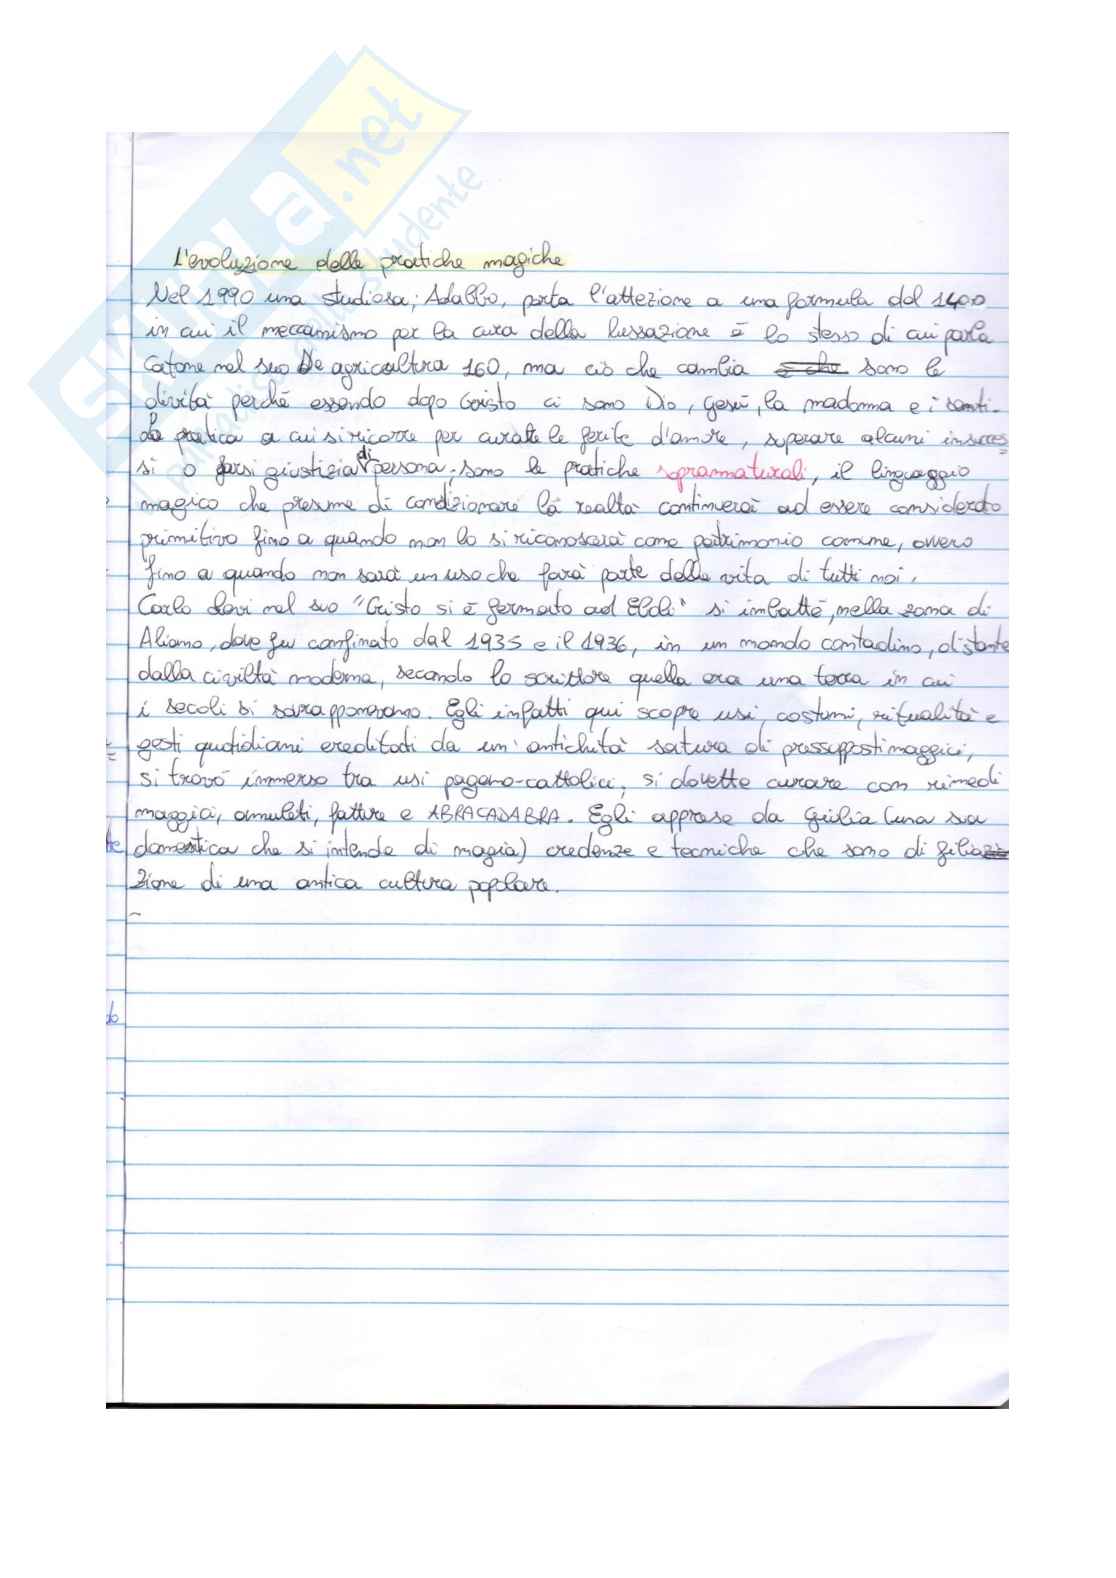 SKUOLA.net
L'evoluzione delle pratiche magiche
Nel 1990 una studiosa, Adabbo, porta l'attezione a una formula del 1400
in cui il meccanismo per la cura della lussazione è lo stesso di cui parla
Catone nel suo De agricoltura 160, ma ciò che cambia sono le
dività perché essendo dopo Cristo ci sono Dio, Gesù, la madonna e i santi.
La pratica a cui si ricorre per curare le ferite d'amore, superare alcuni insucces
si o farsi giustizia di persona, sono le pratiche soprannaturali, il linguaggio
magico che presume di condizionare la realtà continuerà ad essere considerato
primitivo fino a quando non lo si riconoscerà come patrimonio comune, ovvero
fino a quando non sarà un uso che farà parte della vita di tutti noi.
Carlo Levi nel suo "Cristo si è fermato ad Eboli" si imbatté, nella zona di
Aliano, dove fu confinato dal 1935 e il 1936, in un mondo contadino, distante
dalla civiltà moderna, secondo lo scrittore quella era una terra in cui
i secoli si sovrapponevano. Egli infatti qui scopre usi, costumi, ritualità e
gesti quotidiani ereditati da un'antichità satura di pressuppostimaggici,
si trovò immerso tra usi pagano-cattolici, si dovette curare con rimedi
maggici, amuleti, fatture e ABRACADABRA. Egli apprese da Giulia (una sua
domestica che si intende di magia) credenze e tecniche che sono di filia
zione di una antica cultura popolare.